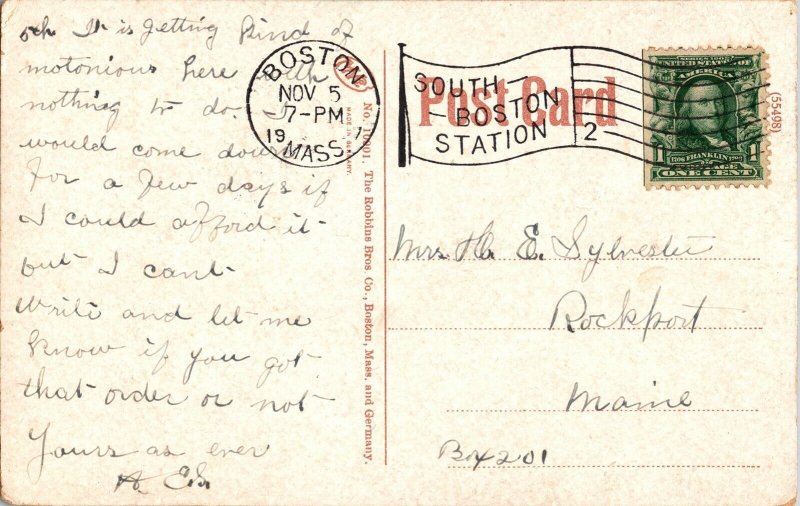 5th It is getting kind of
motonious here with
nothing to do. I
would come down
for a few days if
I could afford it-
but I cant-
Write and let me
know if you got
that order or not
Yours as ever
H. E. S.
No. 10001 The Robbins Bros. Co., Boston, Mass. and Germany.
MADE IN GERMANY.
BOSTON
NOV 5
7-PM
19
MASS.
Post Card
SOUTH-
-BOSTON
STATION
2-
SERIES 1902
UNITED STATES OF
AMERICA
1 FRANKLIN 1
POSTAGE
ONE CENT
(55498)
Mrs. H. E. Sylvester
Rockport
Maine
Box 201